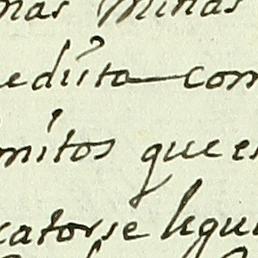 nas Minas
edíita com
mítos que es
catorse legu